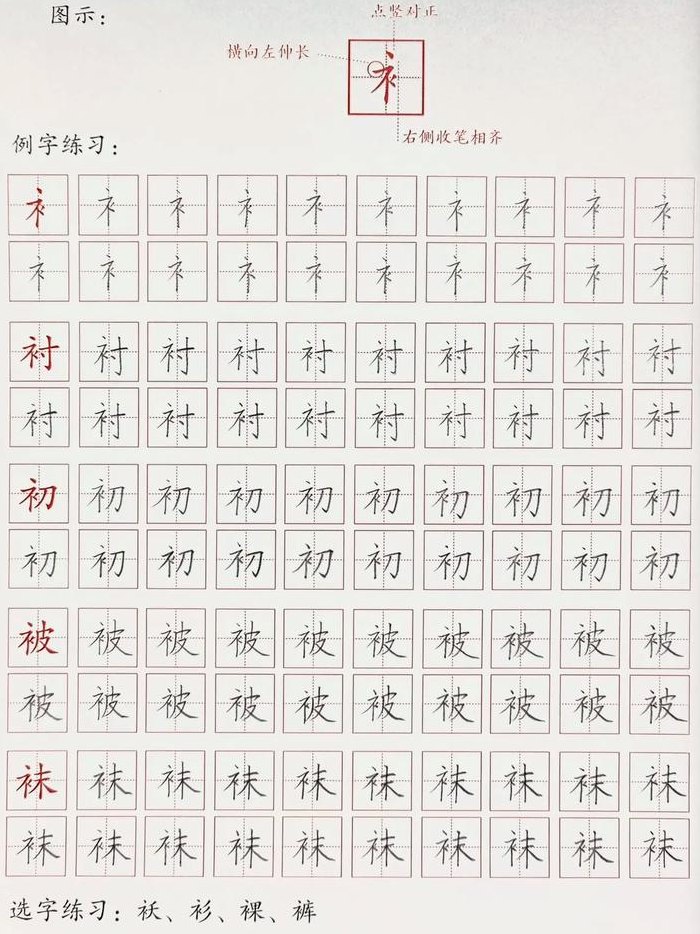 图示：
点竖对正
横向左伸长
衤
右侧收笔相齐
例字练习：
衤衤衤衤衤衤衤衤衤衤
衤衤衤衤衤衤衤衤衤衤
衬衬衬衬衬衬衬衬衬衬
衬衬衬衬衬衬衬衬衬衬
初初初初初初初初初初
初初初初初初初初初初
被被被被被被被被被被
被被被被被被被被被被
袜袜袜袜袜袜袜袜袜袜
袜袜袜袜袜袜袜袜袜袜
选字练习：袄、衫、裸、裤